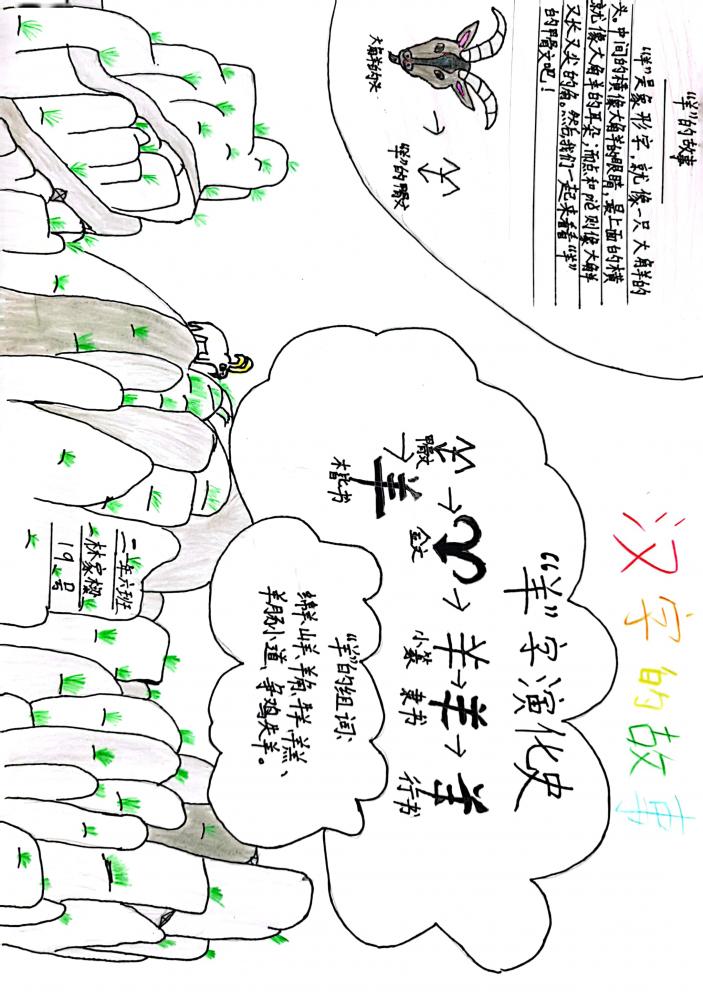 汉字的故事
“羊”的故事
“羊”是象形字，就像一只大角羊的
头。中间的横像大角羊的眼睛，最上面的横
就像大角羊的耳朵；而点和撇则像大角羊
又长又尖的角。然后我们一起来看看“羊”
的甲骨文吧！
大角羊的头
“羊”的甲骨文
“羊”字演化史
甲骨文
金文
小篆
隶书
行书
羊
楷书
“羊”的组词：
绵羊、山羊、羚羊、羊羔、
羊肠小道、争鸡失羊。
二年六班
林家樑
19号